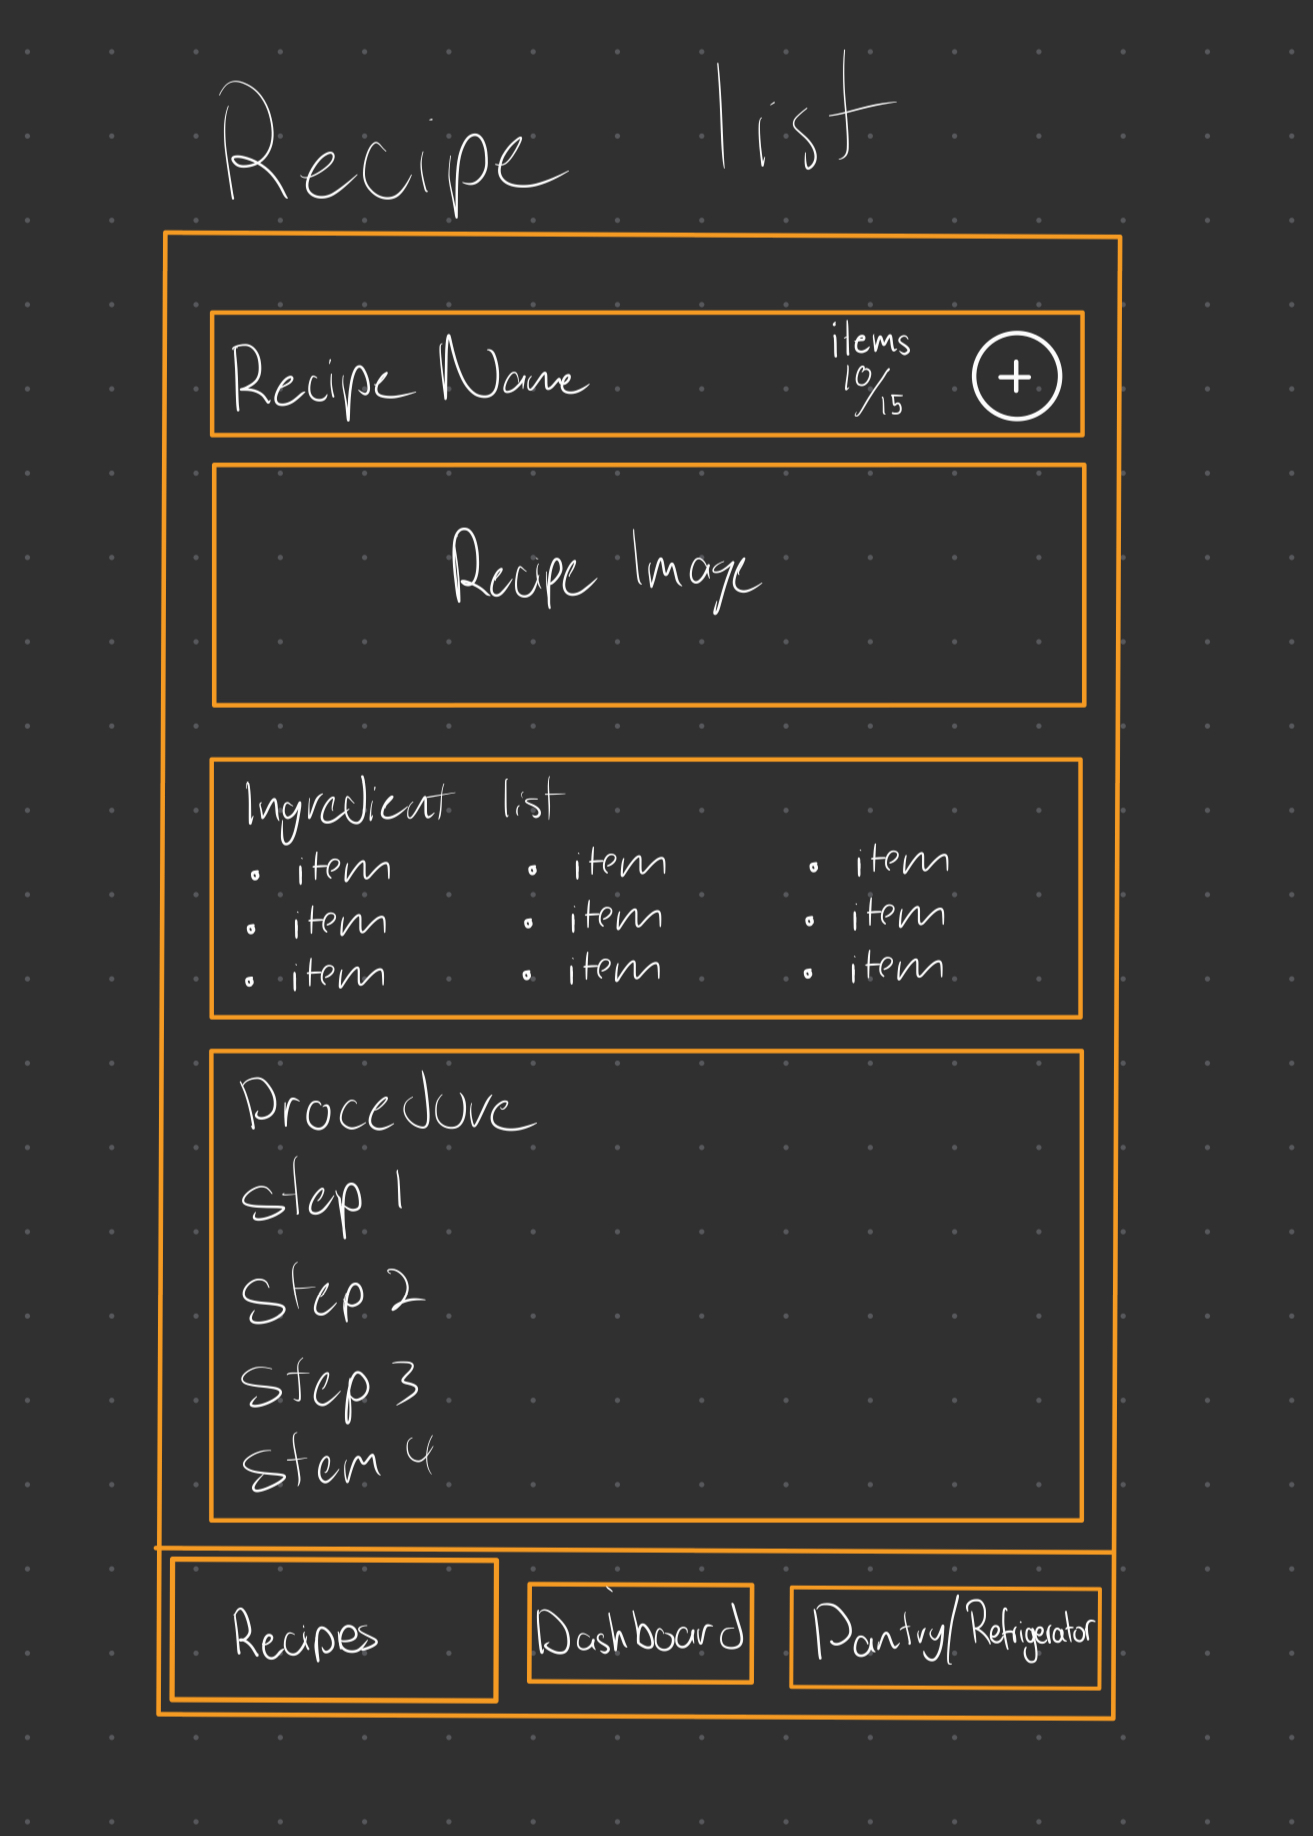 Recipe list
Recipe Name
items
10/15
+
Recipe Image
Ingredient list
• item • item • item
• item • item • item
• item • item • item
Procedure
Step 1
Step 2
Step 3
Stem 4
Recipes Dashboard Pantry/Refrigerator